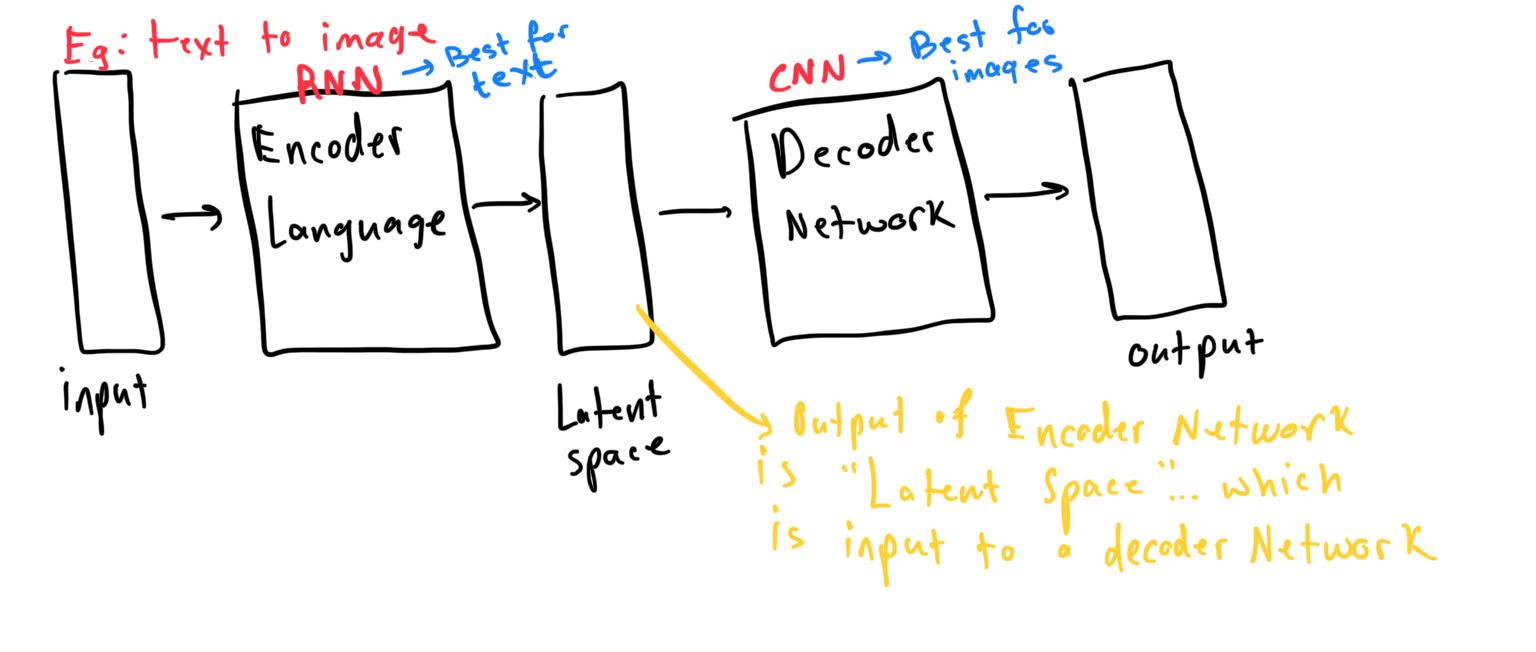 Eg: text to image
RNN → Best for
text
CNN → Best for
images
Encoder
Language
Decoder
Network
input
Latent
space
output
Output of Encoder Network
is "Latent Space"... which
is input to a decoder Network